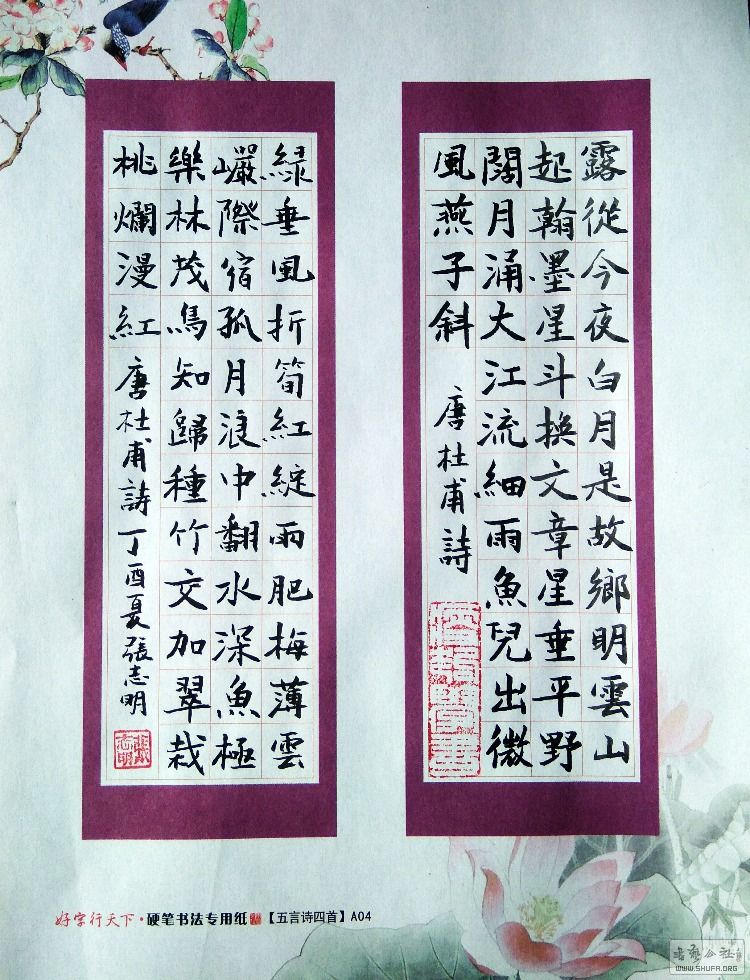 露從今夜白月是故鄉明雲山
起翰墨星斗換文章星垂平野
闊月涌大江流細雨魚兒出微
風燕子斜 唐杜甫詩
綠垂風折筍紅綻雨肥梅薄雲
巖際宿孤月浪中翻水深魚極
樂林茂鳥知歸種竹交加翠栽
桃爛漫紅 唐杜甫詩 丁酉夏張志明
好字行天下·硬笔书法专用纸 【五言诗四首】A04
WWW.SHUFA.ORG